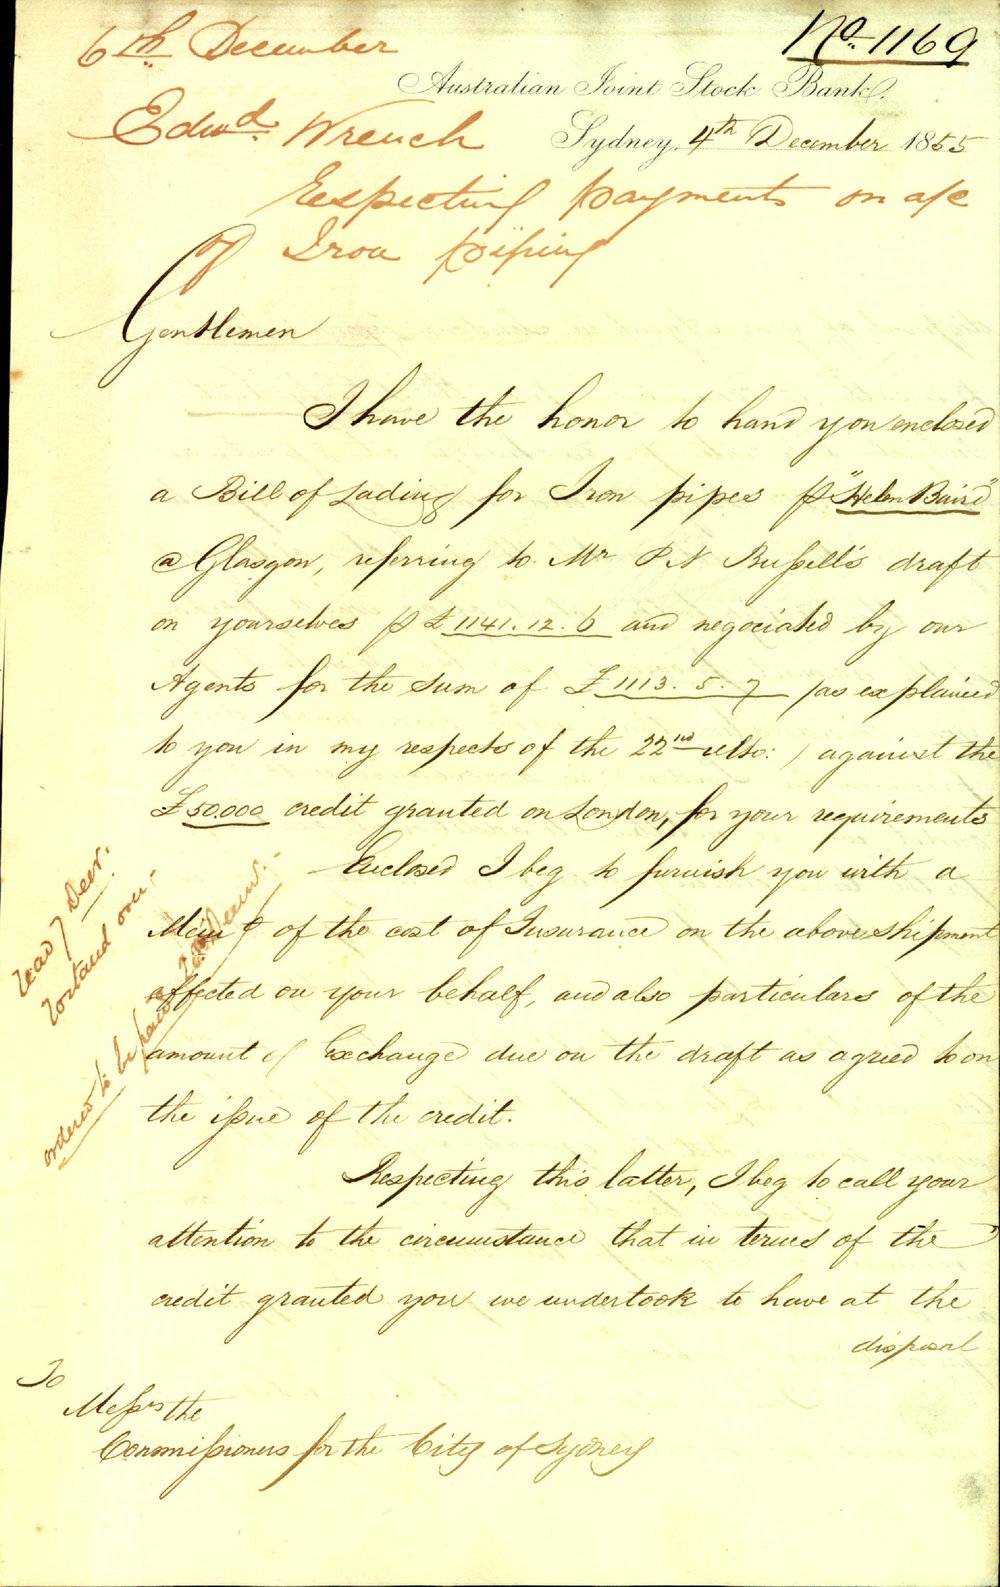 6th December
No. 1169
Australian Joint Stock Bank.
Edwd. Wrench
Sydney, 4th December 1855
Respecting payments on a/c
of Iron piping
Gentlemen
I have the honor to hand you enclosed
a Bill of Lading for Iron pipes p "Helen Baird"
@ Glasgow, referring to Mr P N Russell's draft
on yourselves p £1141.12.6 and negociated by our
Agents for the sum of £1113.5.7 (as explained
to you in my respects of the 22nd ulto:) against the
£50.000 credit granted on London, for your requirements
Enclosed I beg to furnish you with a
of the cost of Insurance on the above shipment
effected on your behalf, and also particulars of the
amount of Exchange due on the draft as agreed to on
the issue of the credit.
Respecting this latter, I beg to call your
attention to the circumstance that in terms of the
credit granted you we undertook to have at the
disposal
read 7 Decr.
to stand over.
ordered to be paid
To
Messrs the
Commissioners for the City of Sydney